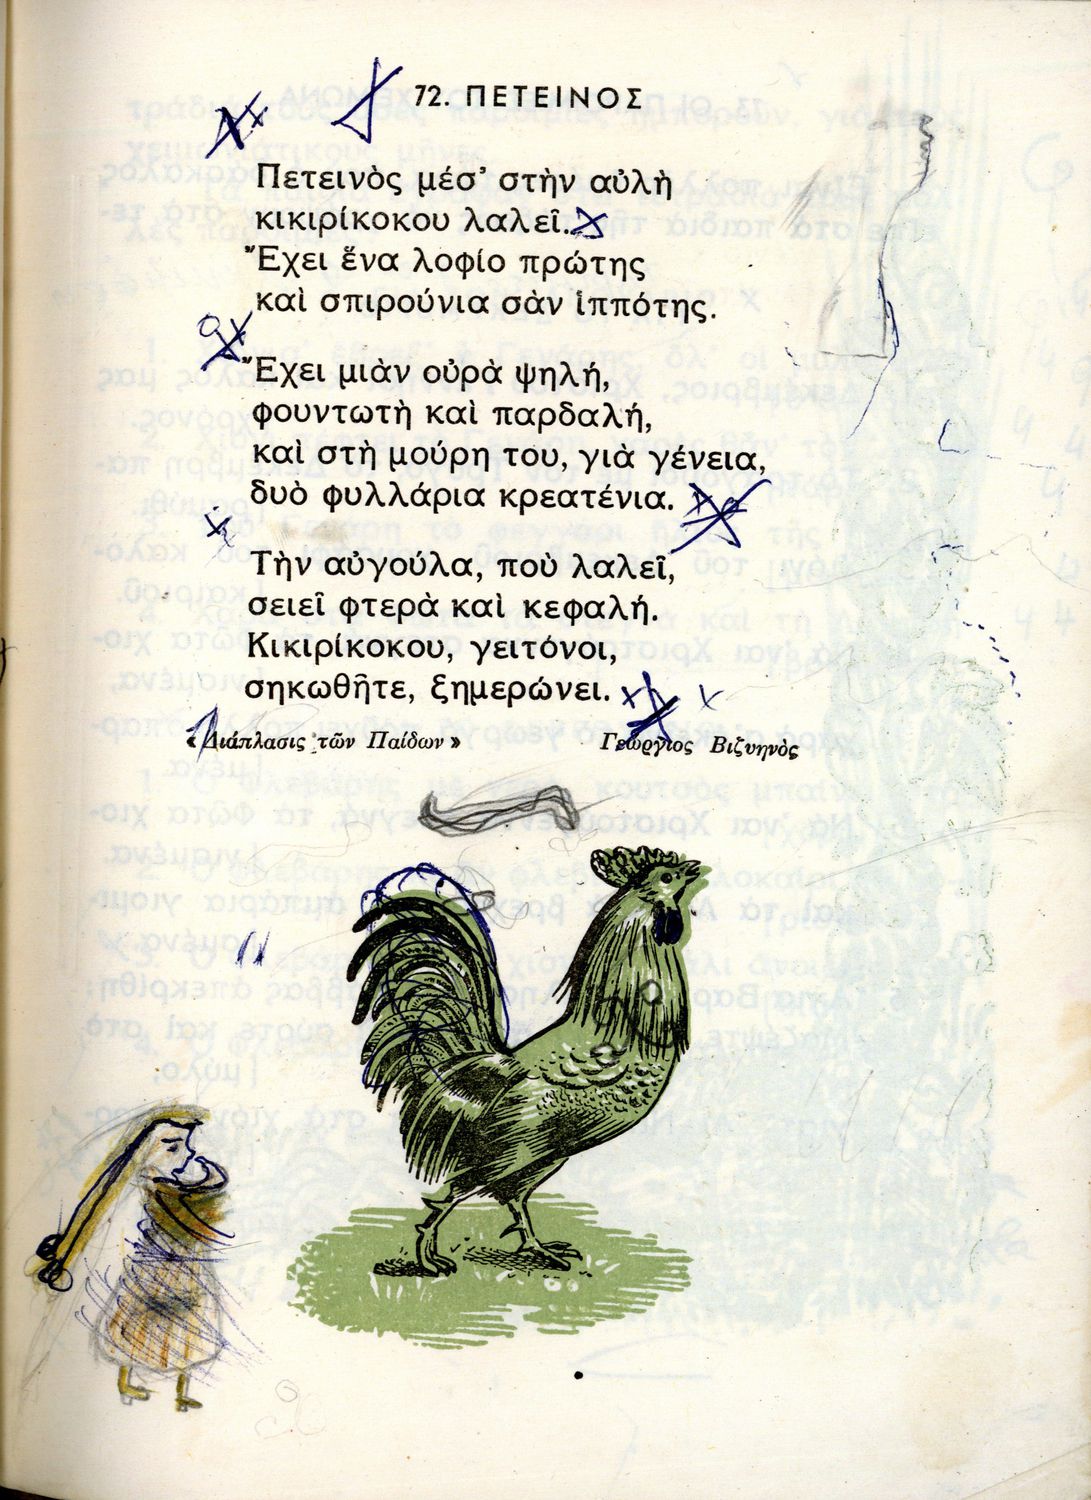 72. ΠΕΤΕΙΝΟΣ
Πετεινὸς μέσ' στὴν αὐλὴ
κικιρίκοκου λαλεῖ.
Ἔχει ἕνα λοφίο πρώτης
καὶ σπιρούνια σὰν ἱππότης.
Ἔχει μιὰν οὐρὰ ψηλή,
φουντωτὴ καὶ παρδαλή,
καὶ στὴ μούρη του, γιὰ γένεια,
δυὸ φυλλάρια κρεατένια.
Τὴν αὐγούλα, ποὺ λαλεῖ,
σειεῖ φτερὰ καὶ κεφαλή.
Κικιρίκοκου, γειτόνοι,
σηκωθῆτε, ξημερώνει.
«Διάπλασις τῶν Παίδων» Γεώργιος Βιζυηνὸς